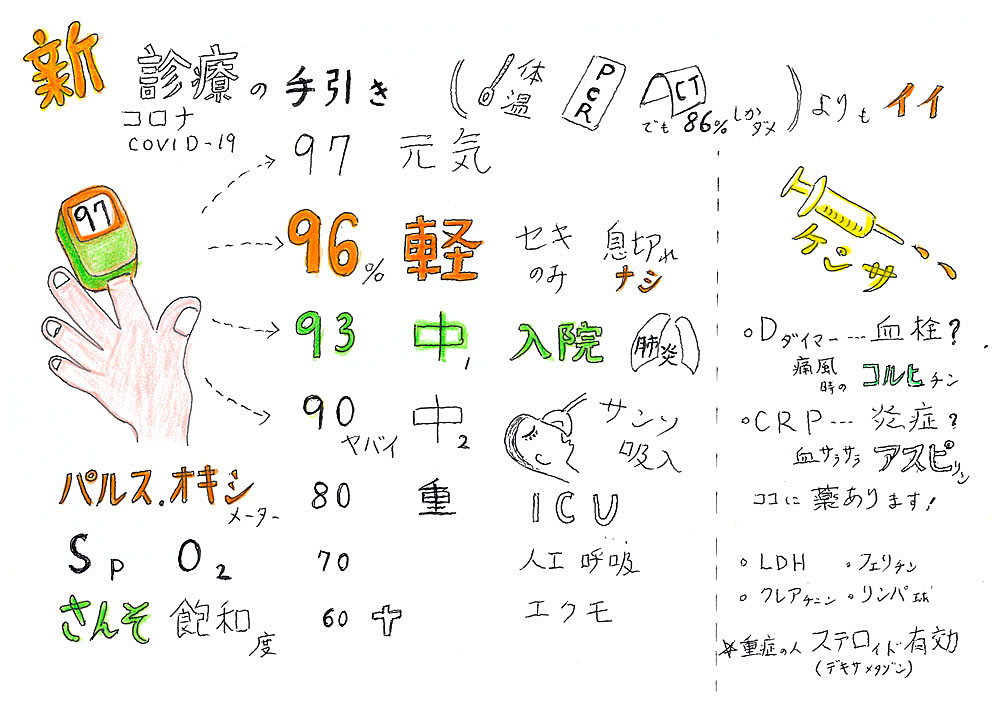 新 診療の手引き (体温 PCR CT でも86%しかダメ) よりもイイ
コロナ
COVID-19
97 元気
97
96% 軽 セキのみ 息切れナシ
93 中1 入院 肺炎
90 ヤバイ 中2 サンソ吸入
パルス.オキシメーター 80 重 ICU
SpO2 70 人工呼吸
さんそ飽和度 60 エクモ
ケンサ
○Dダイマー…血栓?
痛風時のコルヒチン
○CRP…炎症?
血サラサラ アスピリン
ココに薬あります!
○LDH ○フェリチン
○クレアチニン ○リンパ球
☆重症の人ステロイド有効
(デキサメタゾン)